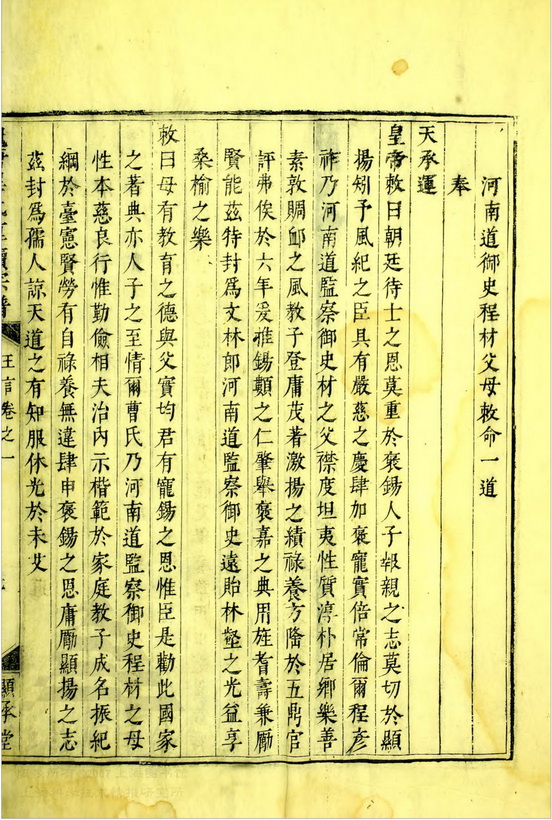 河南道御史程材父母敕命一道
奉
天承運
皇帝敕曰朝廷待士之恩莫重於褒錫人子報親之志莫切於顯
揚矧予風紀之臣具有嚴慈之慶肆加褒寵實倍常倫爾程彥
祚乃河南道監察御史材之父襟度坦夷性質淳朴居鄉樂善
素敦賙䘏之風教子登庸茂著激揚之績祿養方隆於五鼎官
評弗俟於六年爰推錫類之仁肇舉褒嘉之典用旌耆壽兼勵
賢能茲特封爲文林郎河南道監察御史遠貽林壑之光益享
桑榆之樂
敕曰母有教育之德與父實均君有寵錫之恩惟臣是勸此國家
之著典亦人子之至情爾曹氏乃河南道監察御史程材之母
性本慈良行惟勤儉相夫治內示楷範於家庭教子成名振紀
綱於臺憲賢勞有自祿養無違肆申褒錫之恩庸勵顯揚之志
茲封爲孺人諒天道之有知服休光於未艾
王言卷之一
顯承堂